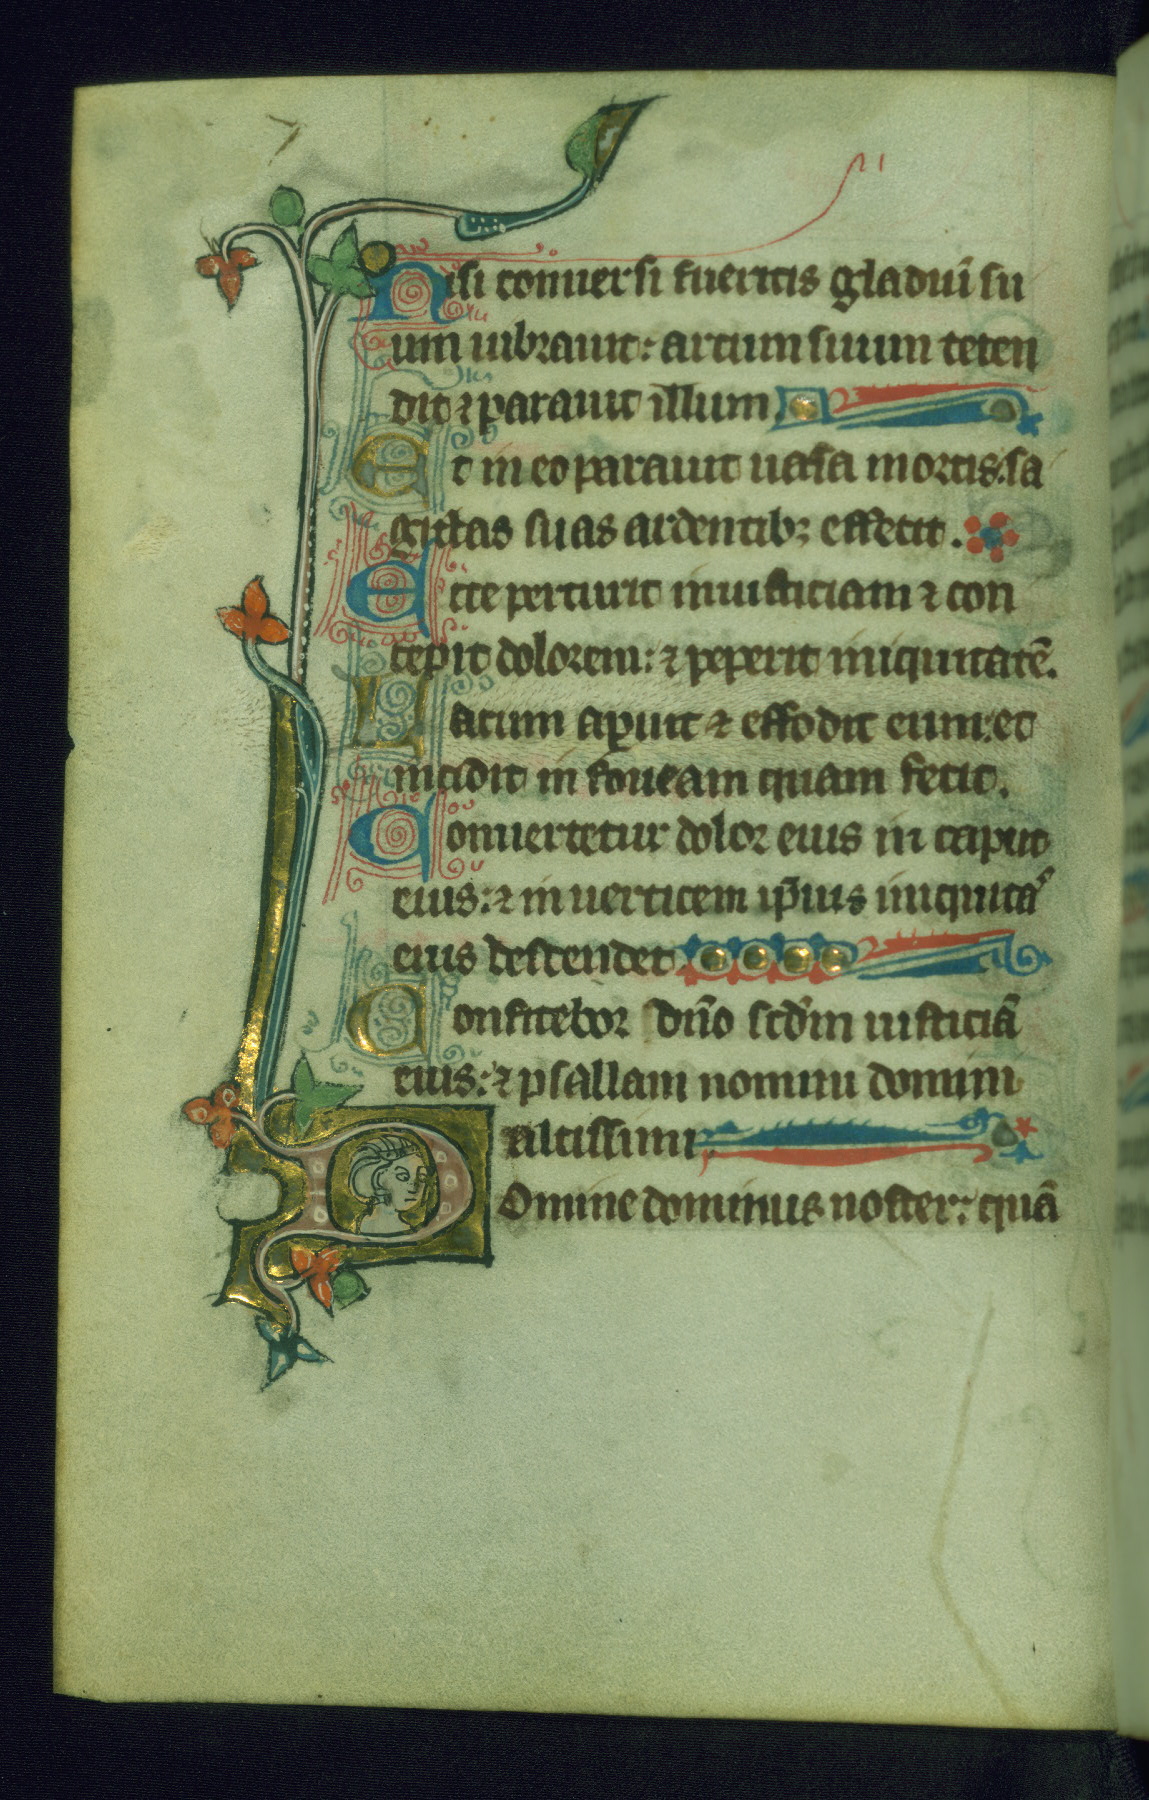 Nisi conuersi fueritis gladiū su
um uibrauit: arcum suum teten
dit ⁊ parauit illum
Et in eo parauit uasa mortis: sa
gittas suas ardentibꝫ effecit.
Ecce perturit iniusticiam ⁊ con
cepit dolorem: ⁊ peperit iniquitatē.
Lacum aperuit ⁊ effodit eum: et
incidit in foueam quam fecit.
Conuertetur dolor eius in caput
eius: ⁊ in uerticem ip̄ius iniquitas
eius descendet
Confitebor dn̄o scd̄m iusticiā
eius: ⁊ psallam nomini domini
altissimi.
Domine dominus noster: quā